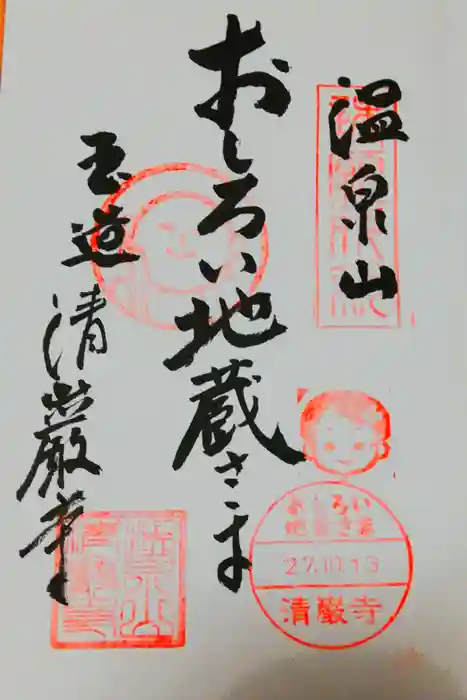 温泉山
おしろい地蔵さま
玉造
清巌寺
おしろい
地蔵さま
27.10.13
清巌寺